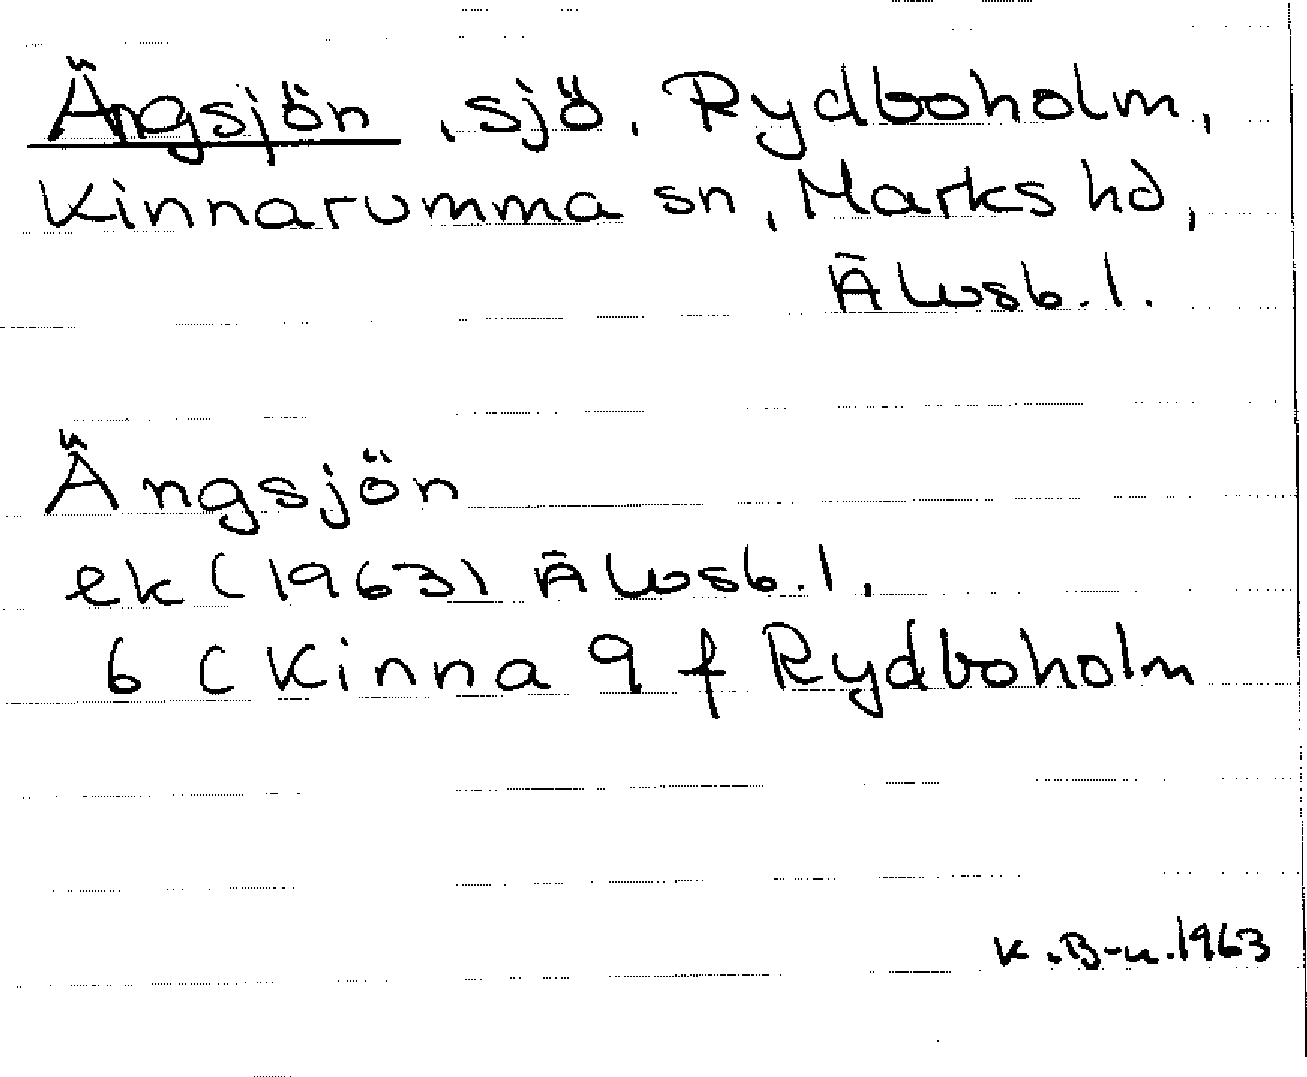 Ängsjön, sjö, Rydboholm,
Kinnarumma sn, Marks hd,
Älvsb. l.
Ängsjön
ek (1963) Älvsb. l.
6 C Kinna 9 f Rydboholm
K.B-n. 1963